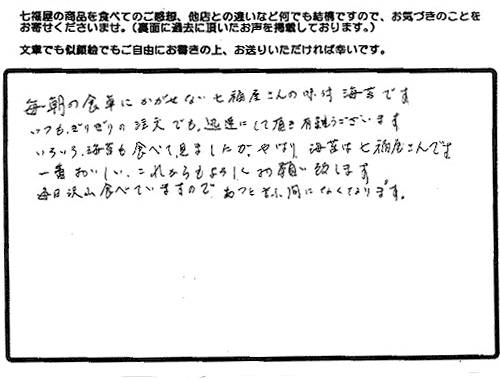 七福屋の商品を食べてのご感想、他店との違いなど何でも結構ですので、お気づきのことを
お寄せくださいませ。（裏面に過去に頂いたお声を掲載しております。）
文章でも似顔絵でもご自由にお書きの上、お送りいただければ幸いです。
毎朝の食卓にかかせない七福屋さんの味付海苔です
いつも、ぎりぎりの注文でも、迅速にして頂き有難うございます
いろいろ、海苔も食べて見ましたが、やはり海苔は七福屋さんです
一番おいしい、これからもよろしくお願い致します
毎日沢山食べていますので あっと言う間になくなります。